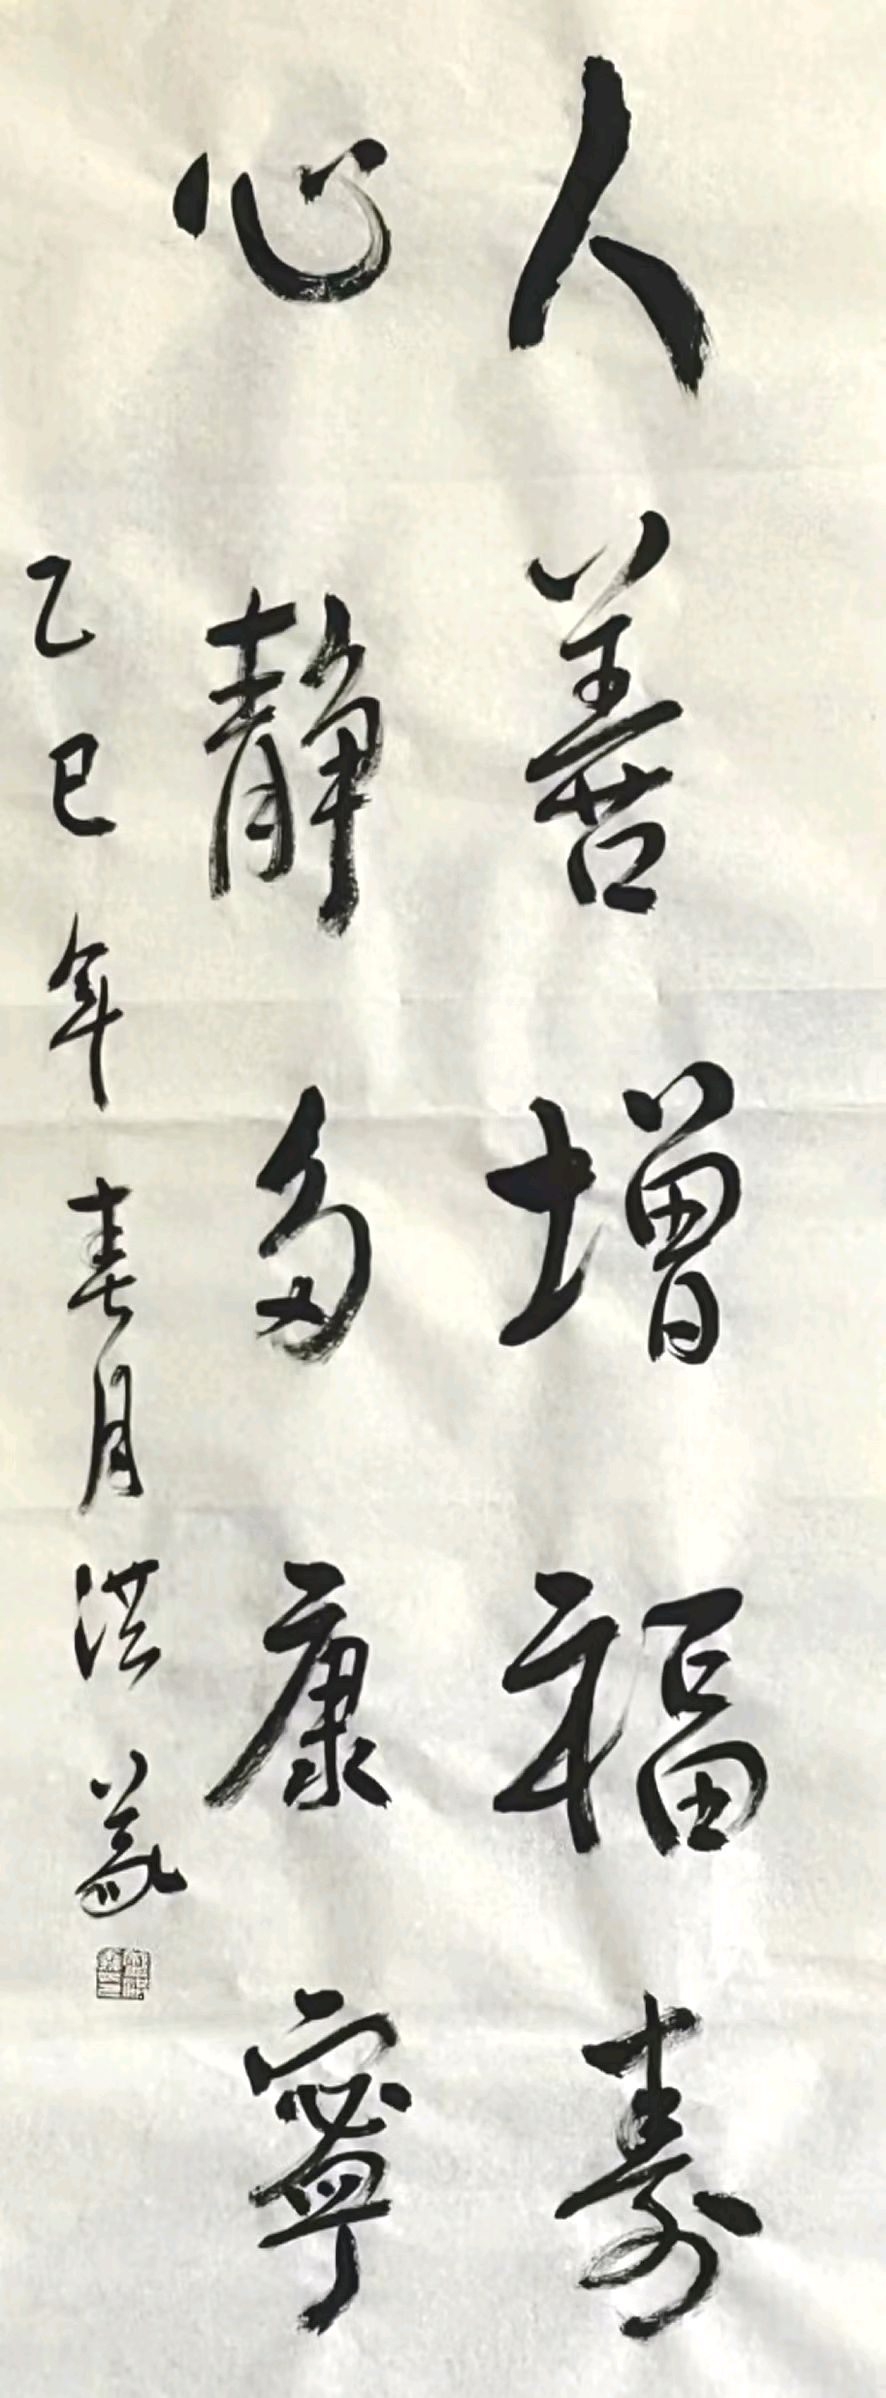 人善增福寿
心静多康寧
乙巳年春月洪义